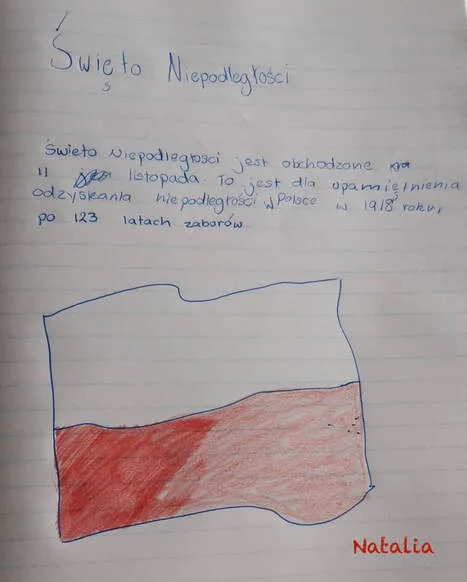 Święto Niepodległości
Święto Niepodległości jest obchodzone
11 listopada. To jest dla upamiętnienia
odzyskania niepodległości w Polsce w 1918 roku,
po 123 latach zaborów
Natalia